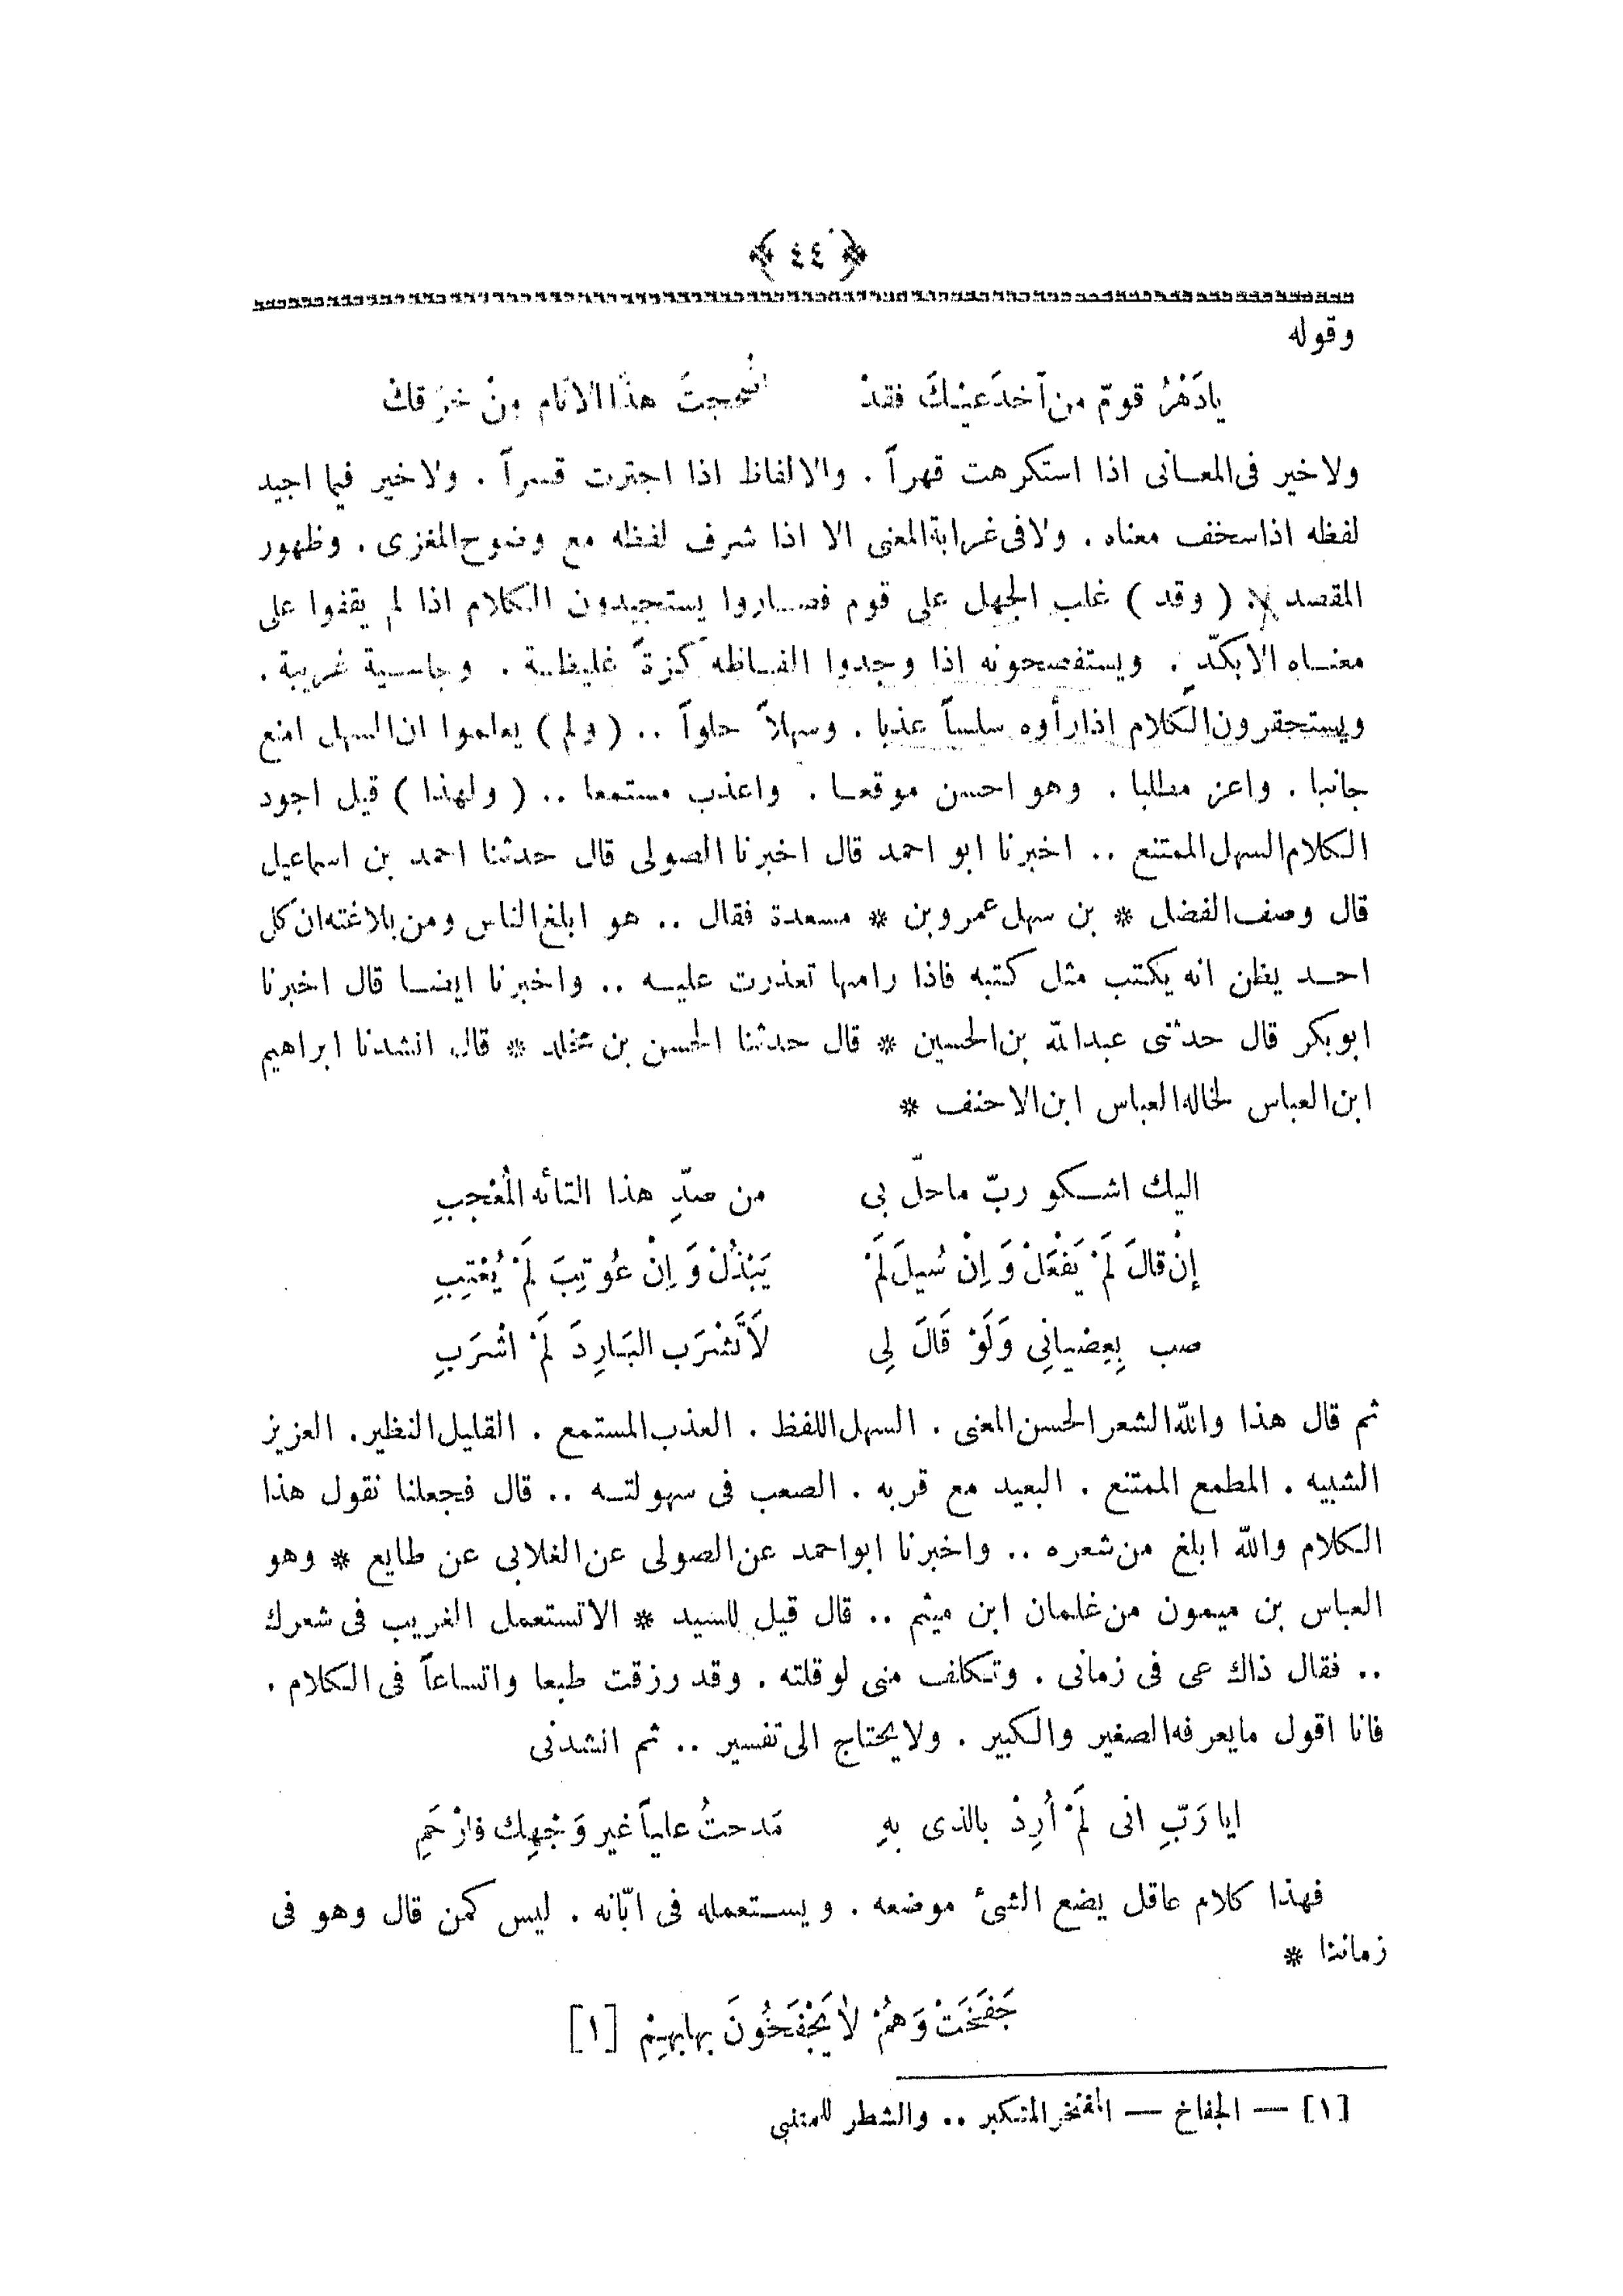 ﴿ ٤٤ ﴾
وقوله
يادَهْرُ قومّ من آخدَعيْكَ فقدْ اضججتَ هذا الانام من خرقكْ
ولاخير فى المعانى اذا استكرهت قهراً . والالفاظ اذا اجترت قسراً . ولاخير فيما اجيد
لفظه اذاسخف معناه . ولافى غرابة المعنى الا اذا شرف لفظه مع وضوح المغزى . وظهور
المقصد . ( وقد ) غلب الجهل على قوم فصاروا يستجيدون الكلام اذا لم يقفوا على
معناه الابكدّ . ويستفصحونه اذا وجدوا الفاظه كزةً غليظة . وجاسية غريبة .
ويستحقرون الكلام اذارأوه سلساً عذبا . وسهلاً حلواً .. ( ولم ) يعلموا ان السهل امنع
جانبا . واعز مطلبا . وهو احسن موقعا . واعذب مستمعا .. ( ولهذا ) قيل اجود
الكلام السهل الممتنع .. اخبرنا ابو احمد قال اخبرنا الصولى قال حدثنا احمد بن اسماعيل
قال وصف الفضل * بن سهل عمرو بن * مسعدة فقال .. هو ابلغ الناس ومن بلاغته ان كل
احد يظن انه يكتب مثل كتبه فاذا رامها تعذرت عليه .. واخبرنا ايضا قال اخبرنا
ابوبكر قال حدثنى عبدالله بن الحسين * قال حدثنا الحسن بن مخلد * قال انشدنا ابراهيم
ابن العباس لخاله العباس ابن الاحنف *
اليك اشكو ربّ ماحلّ بى من صدِّ هذا التائه المُعْجبِ
إنْ قالَ لَمْ يَفْعَلْ وَ اِنْ سُيلَ لَمْ يَبْذُلْ وَ اِنْ عُوتِبَ لَمْ يُعْتِبِ
صب بِعِصْيانِى وَلَوْ قَالَ لِى لاَتَشْرَب البَارِدَ لَمْ اشْرَبِ
ثم قال هذا والله الشعر الحسن المعنى . السهل اللفظ . العذب المستمع . القليل النظير . العزيز
الشبيه . المطمع الممتنع . البعيد مع قربه . الصعب فى سهولته .. قال فجعلنا نقول هذا
الكلام والله ابلغ من شعره .. واخبرنا ابواحمد عن الصولى عن الغلابى عن طايع * وهو
العباس بن ميمون من غلمان ابن ميثم .. قال قيل للسيد * الاتستعمل الغريب فى شعرك
.. فقال ذاك عى فى زمانى . وتكلف منى لوقلته . وقد رزقت طبعا واتساعاً فى الكلام .
فانا اقول مايعرفه الصغير والكبير . ولايحتاج الى تفسير .. ثم انشدنى
ايا رَبِّ انى لَمْ اُرِدْ بالذى بهِ مَدحتُ علياً غير وَجْهِك فارْحَمِ
فهذا كلام عاقل يضع الشئ موضعه . ويستعمله فى ابّانه . ليس كمن قال وهو فى
زماننا *
جَفَخَتْ وَهُمْ لاٰ يَجْفَخُونَ بهابهِمْ [١]
[١] — الجفاخ — المفتخر المتكبر .. والشطر للمتنبى